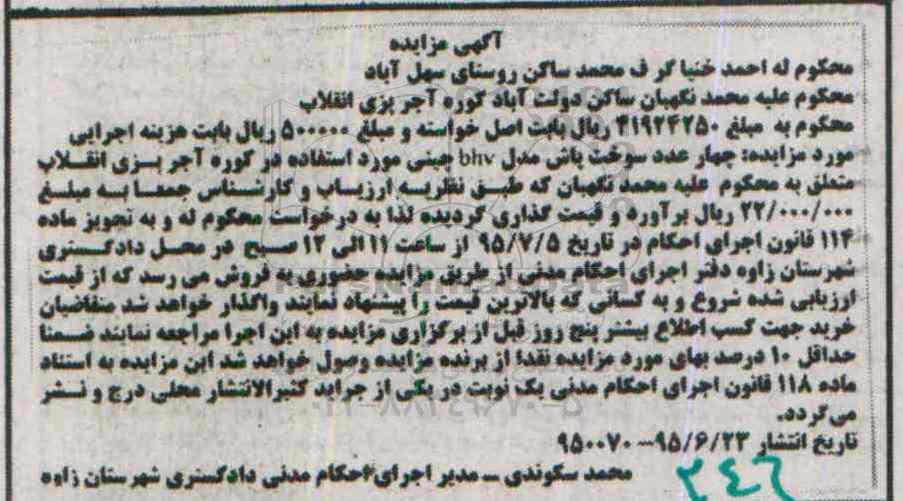 آگهی مزایده
محکوم له احمد خنیا گر ف محمد ساکن روستای سهل آباد
محکوم علیه محمد نگهبان ساکن دولت آباد کوره آجر پزی انقلاب
محکوم به مبلغ ۴۱۹۲۴۲۵۰ ریال بابت اصل خواسته و مبلغ ۵۰۰۰۰۰ ریال بابت هزینه اجرایی
مورد مزایده: چهار عدد سوخت پاش مدل bhv چینی مورد استفاده در کوره آجر پزی انقلاب
متعلق به محکوم علیه محمد نگهبان که طبق نظریه ارزیاب و کارشناس جمعا به مبلغ
۲۲/۰۰۰/۰۰۰ ریال برآورد و قیمت گذاری گردیده لذا به درخواست محکوم له و به تجویز ماده
۱۱۴ قانون اجرای احکام در تاریخ ۹۵/۷/۵ از ساعت ۱۱ الی ۱۲ صبح در محل دادگستری
شهرستان زاوه دفتر اجرای احکام مدنی از طریق مزایده حضوری به فروش می رسد که از قیمت
ارزیابی شده شروع و به کسانی که بالاترین قیمت را پیشنهاد نمایند واگذار خواهد شد متقاضیان
خرید جهت کسب اطلاع بیشتر پنج روز قبل از برگزاری مزایده به این اجرا مراجعه نمایند ضمنا
حداقل ۱۰ درصد بهای مورد مزایده نقدا از برنده مزایده وصول خواهد شد این مزایده به استناد
ماده ۱۱۸ قانون اجرای احکام مدنی یک نوبت در یکی از جراید کثیرالانتشار محلی درج و نشر
می گردد.
تاریخ انتشار ۹۵/۶/۲۳– ۹۵۰۰۷۰
محمد سکوندی – مدیر اجرای احکام مدنی دادگستری شهرستان زاوه
۲۴۶